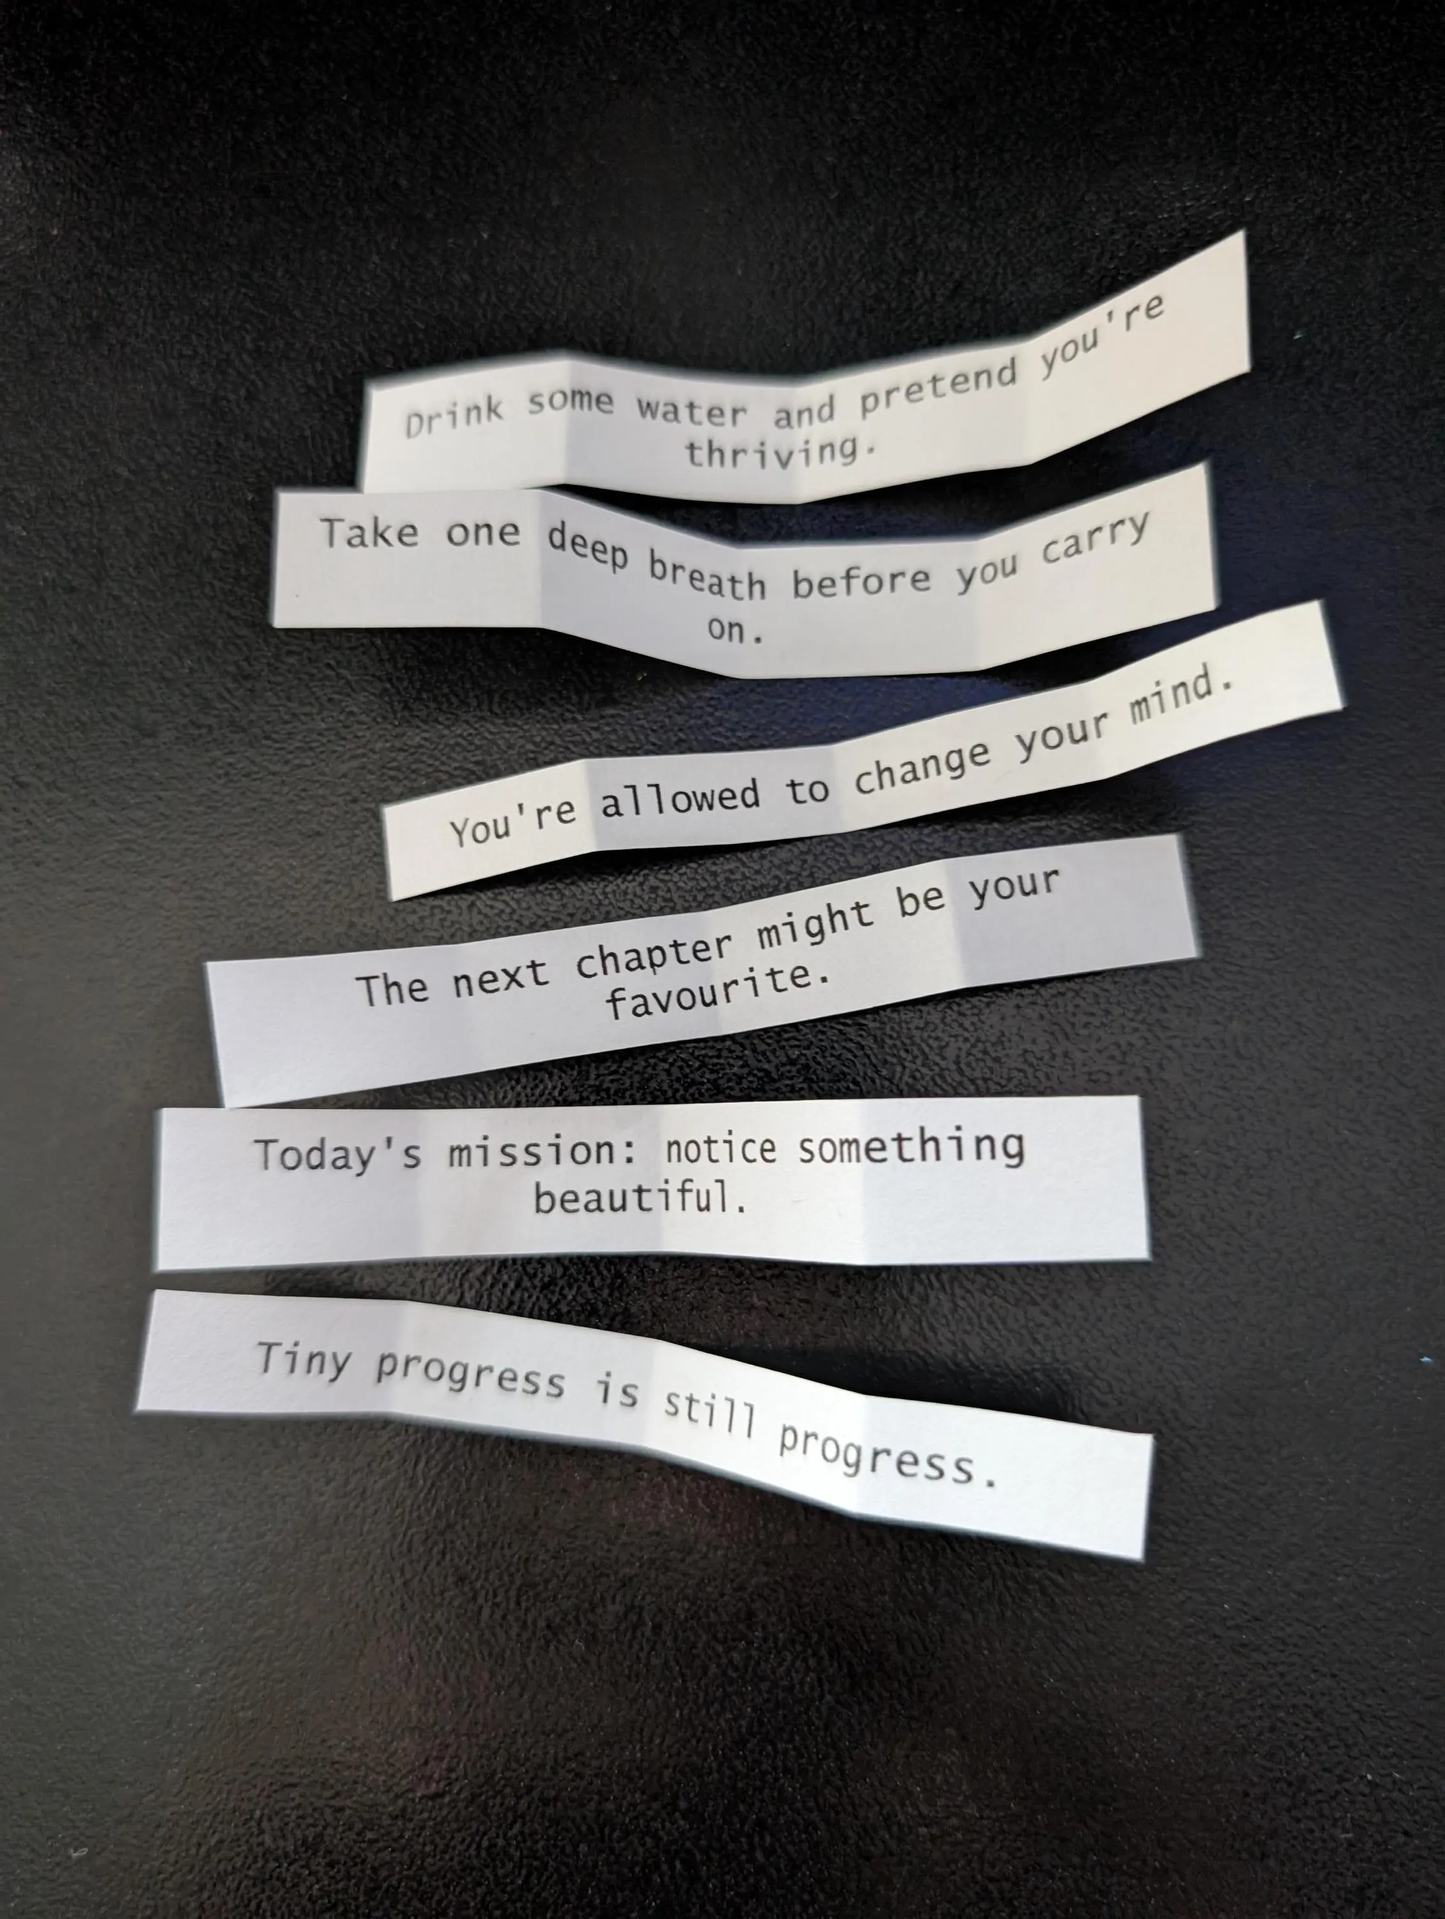 Drink some water and pretend you're
thriving.
Take one deep breath before you carry
on.
You're allowed to change your mind.
The next chapter might be your
favourite.
Today's mission: notice something
beautiful.
Tiny progress is still progress.